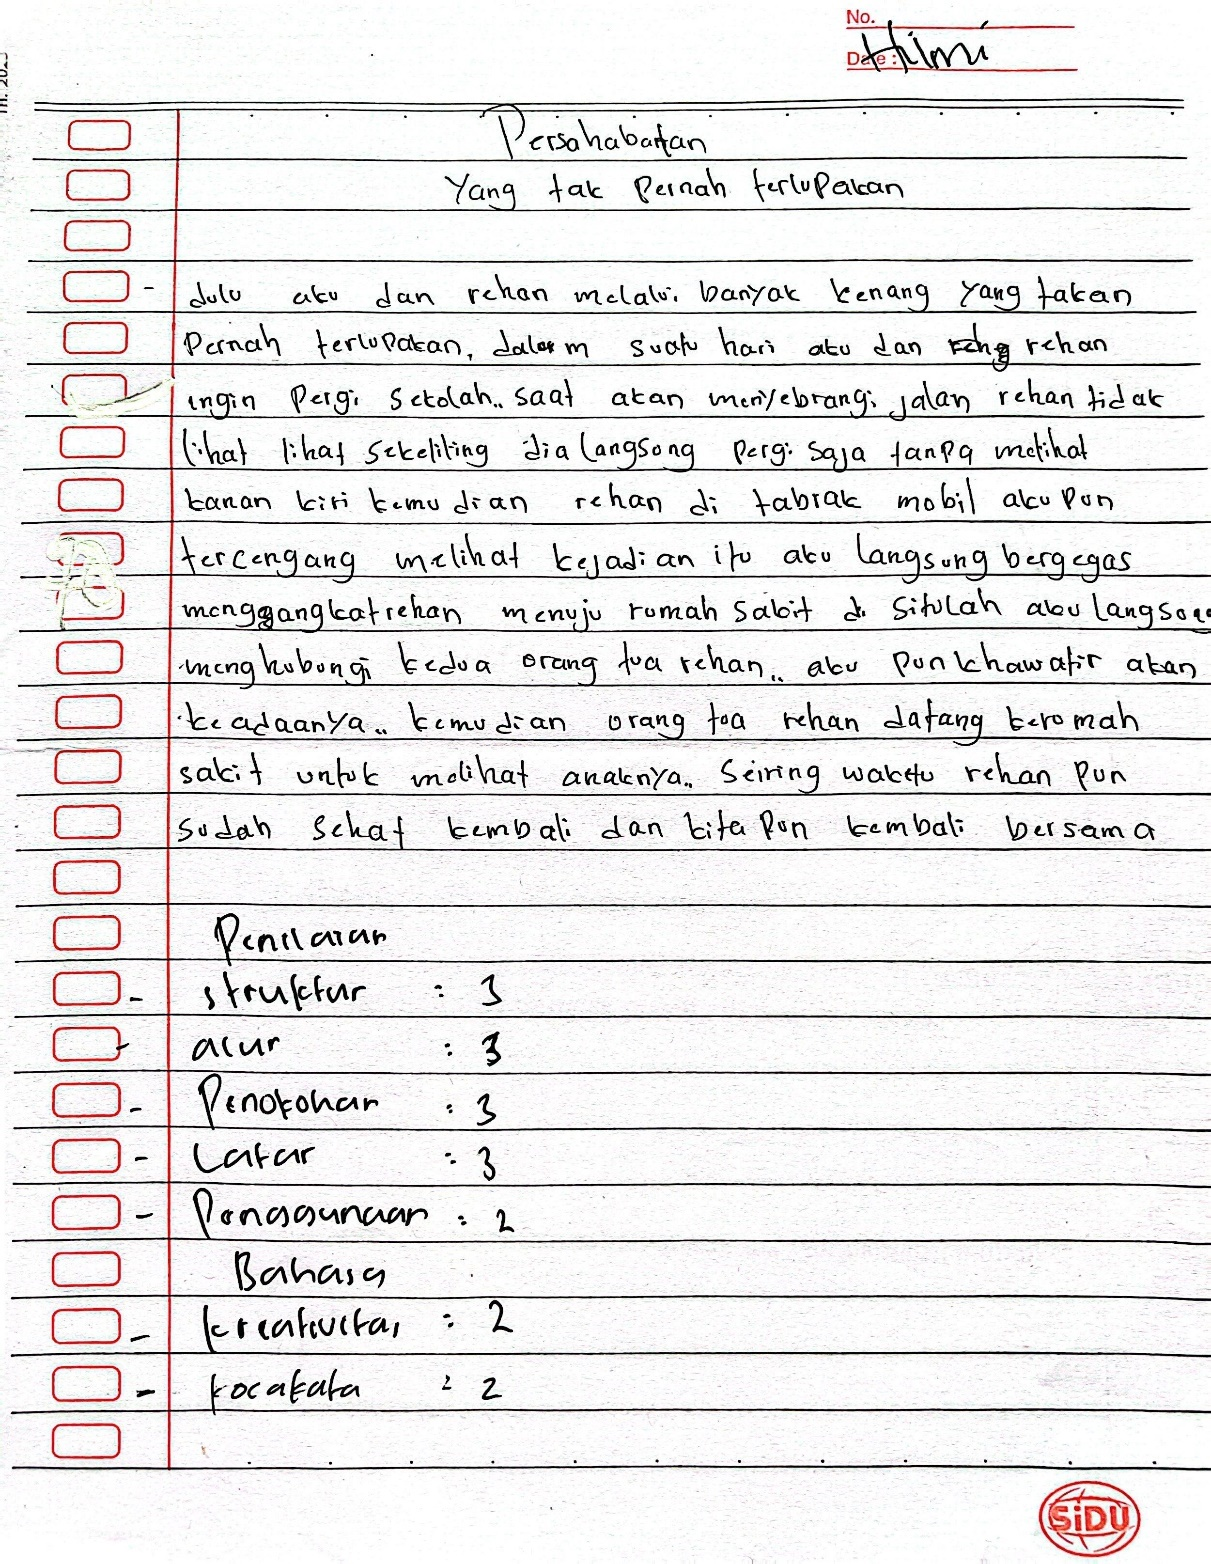 No.
Date: Hilmi
Persahabatan
Yang tak Pernah terlupakan
- dulu aku dan rehan melalui banyak kenang yang takan
Pernah terlupakan, dalam suatu hari aku dan rehan
ingin Pergi sekolah.. saat akan menyebrangi jalan rehan tidak
lihat lihat sekeliling dia langsong pergi saja tanpa melihat
kanan kiri kemudian rehan di tabrak mobil aku pun
tercengang melihat kejadian itu aku langsung bergegas
menggangkat rehan menuju rumah sakit di situlah aku langsong
menghubungi kedua orang tua rehan.. aku pun khawatir akan
keadaanya.. kemudian orang toa rehan datang keromah
sakit untuk melihat anaknya.. Seiring waktu rehan pun
sudah sehat kembali dan kita pun kembali bersama
Penilaian
- struktur : 3
- alur : 3
- Penokohan : 3
- Latar : 3
- Penggunaan : 2
Bahasa
- kreativitas : 2
- kocakata : 2
SiDU